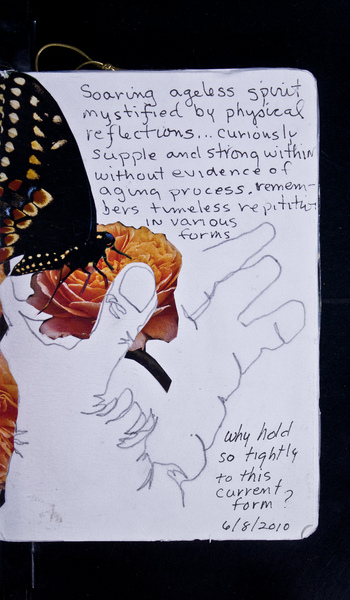 Soaring ageless spirit
mystified by physical
reflections... curiously
supple and strong within
without evidence of
aging process. remem-
bers timeless repititu-
in various
forms
why hold
so tightly
to this
current
form?
6/8/2010